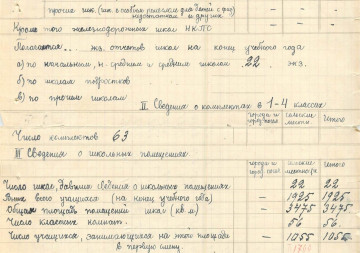 прочие шк. (шк. с особым режимом для детей с физ)
недостатками и других
Кроме того железнодорожных школ НКПС
Полагается.. экз. отчетов школ на конец учебного года
а) по начальным, н. средним и средним школам 22 экз.
б) по школам подростков
в) по прочим школам
II. Сведения о комплектах в 1-4 классах
города и сельские местн. Итого
Число комплектов 63
III Сведения о школьных помещениях
города и сельские Итого
Число школ, давших сведения о школьных помещениях – 22 22
В них всего учащихся (на конец учебного года) – 1925 1925
Общая площадь помещений школ (кв м) – 3475 3475
Число классных комнат. – 56. 56.
Число учащихся, занимающихся на этой площади – 1055 1055
в первую смену.